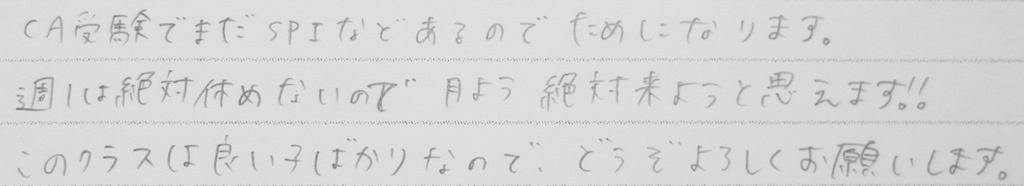 CA受験でまだSPIなどあるのでためになります。
週1は絶対休めないので月よう絶対来ようと思えます!!
このクラスは良い子ばかりなので、どうぞよろしくお願いします。